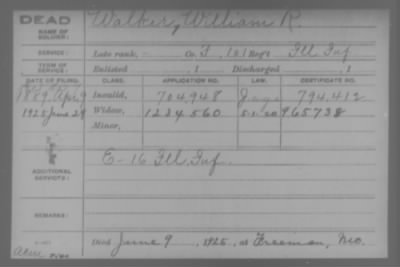 DEAD
NAME OF SOLDIER: Walker, William R.
SERVICE: Late rank, - Co. F, 101 Reg't Ill Inf
TERM OF SERVICE: Enlisted , 1 Discharged , 1
DATE OF FILING. CLASS. APPLICATION NO. LAW. CERTIFICATE NO.
1889, Apr 9 Invalid, 704,948 794,412
1925 June 29 Widow, 1234560 5-1-20 965738
Minor,
E-16 Ill. Inf.
ADDITIONAL SERVICES:
REMARKS:
Died June 9, 1925, at Freeman, Mo.